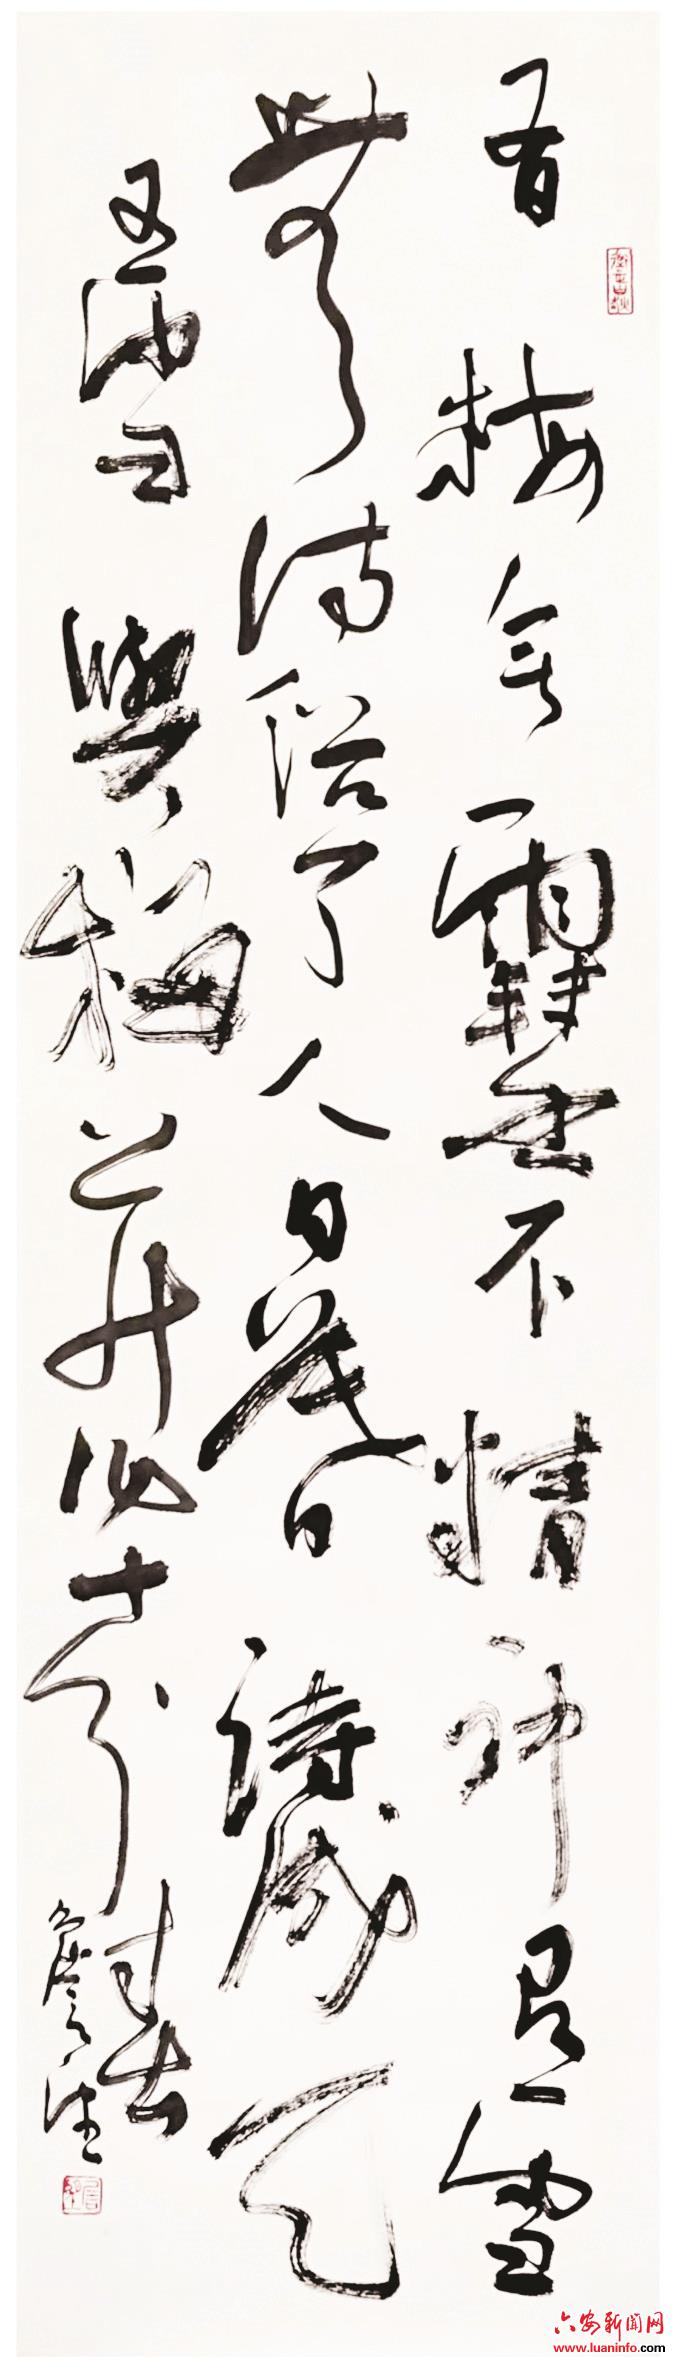 有梅無雪不精神有雪
無詩俗了人日暮詩成天
又雪與梅并作十分春
六安新闻网
www.luaninfo.com